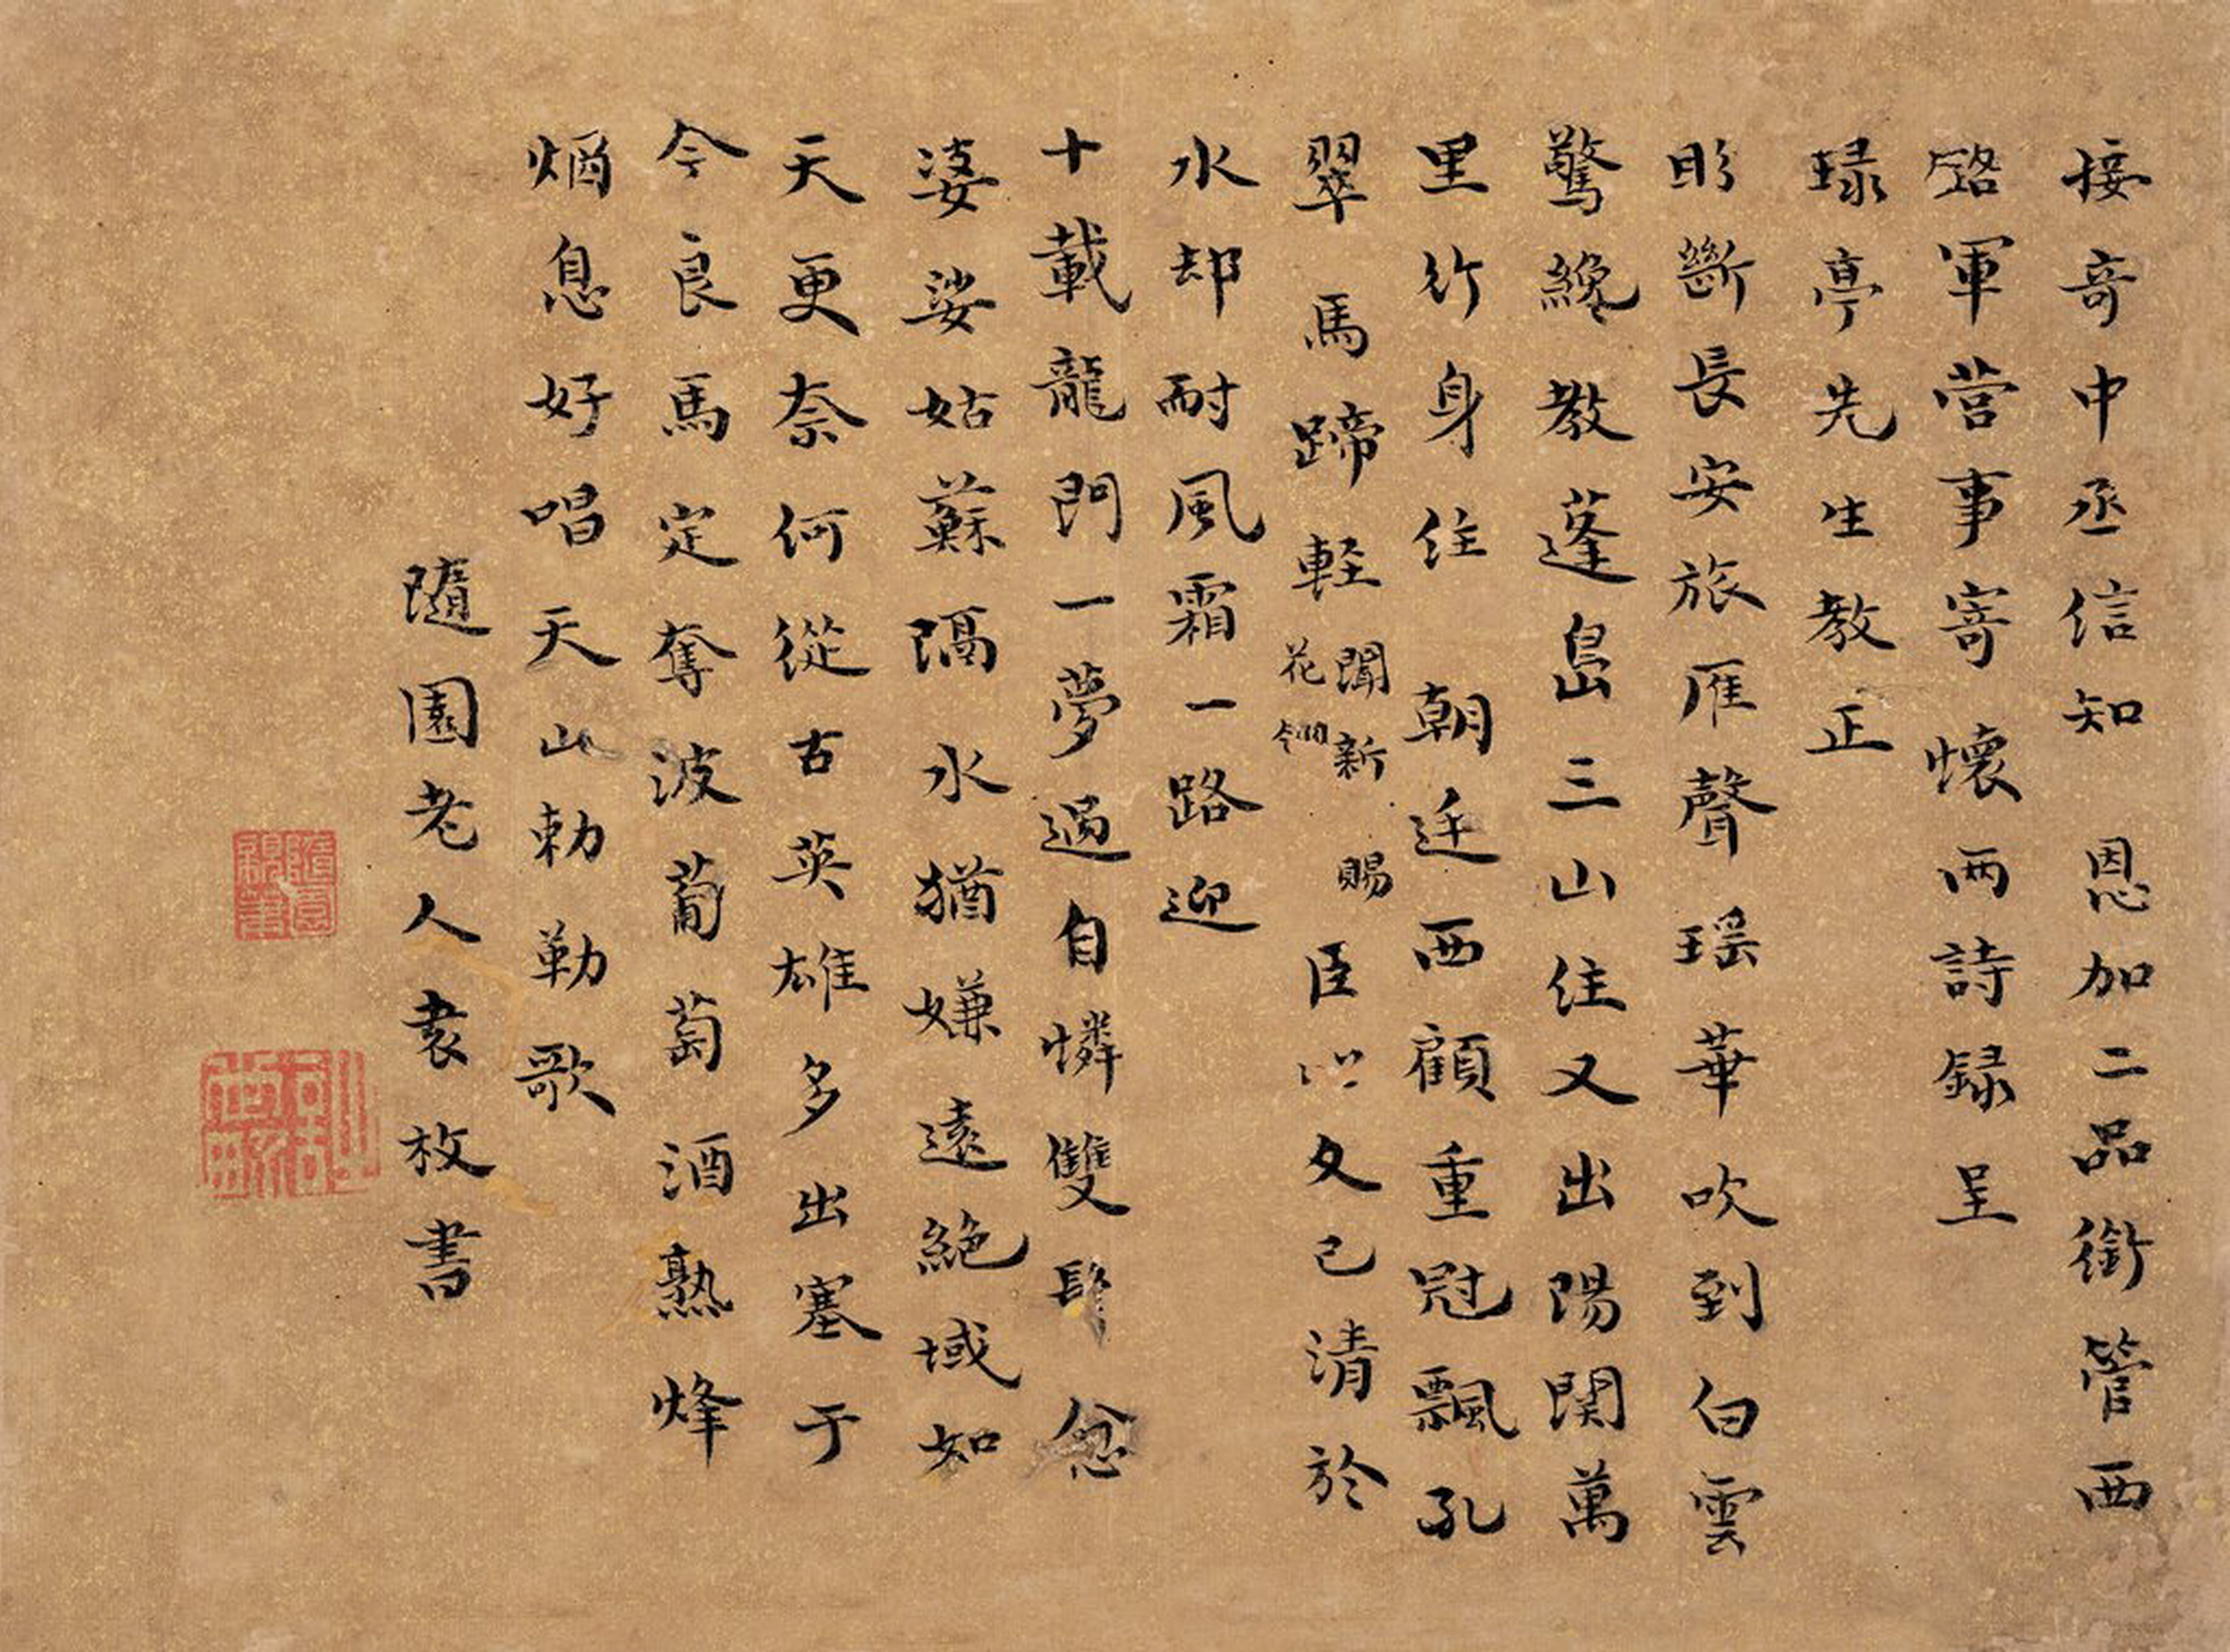 接竒中丞信知 恩加二品銜管西
路軍營事寄懷兩詩録呈
琭亭先生教正
盼斷長安旅雁聲瑶華吹到白雲
驚纔教蓬島三山住又出陽関萬
里行身住 朝廷西顧重冠飄孔
翠馬蹄軽 聞新 賜
花翎
臣心久已清於
水却耐風霜一路迎
十載龍門一夢過自憐雙鬢忽
婆娑姑蘇隔水猶嫌遠絶域如
天更奈何從古英雄多出塞于
今良馬定奪波葡萄酒熟烽
烟息好唱天山勅勒歌
隨園老人袁枚書